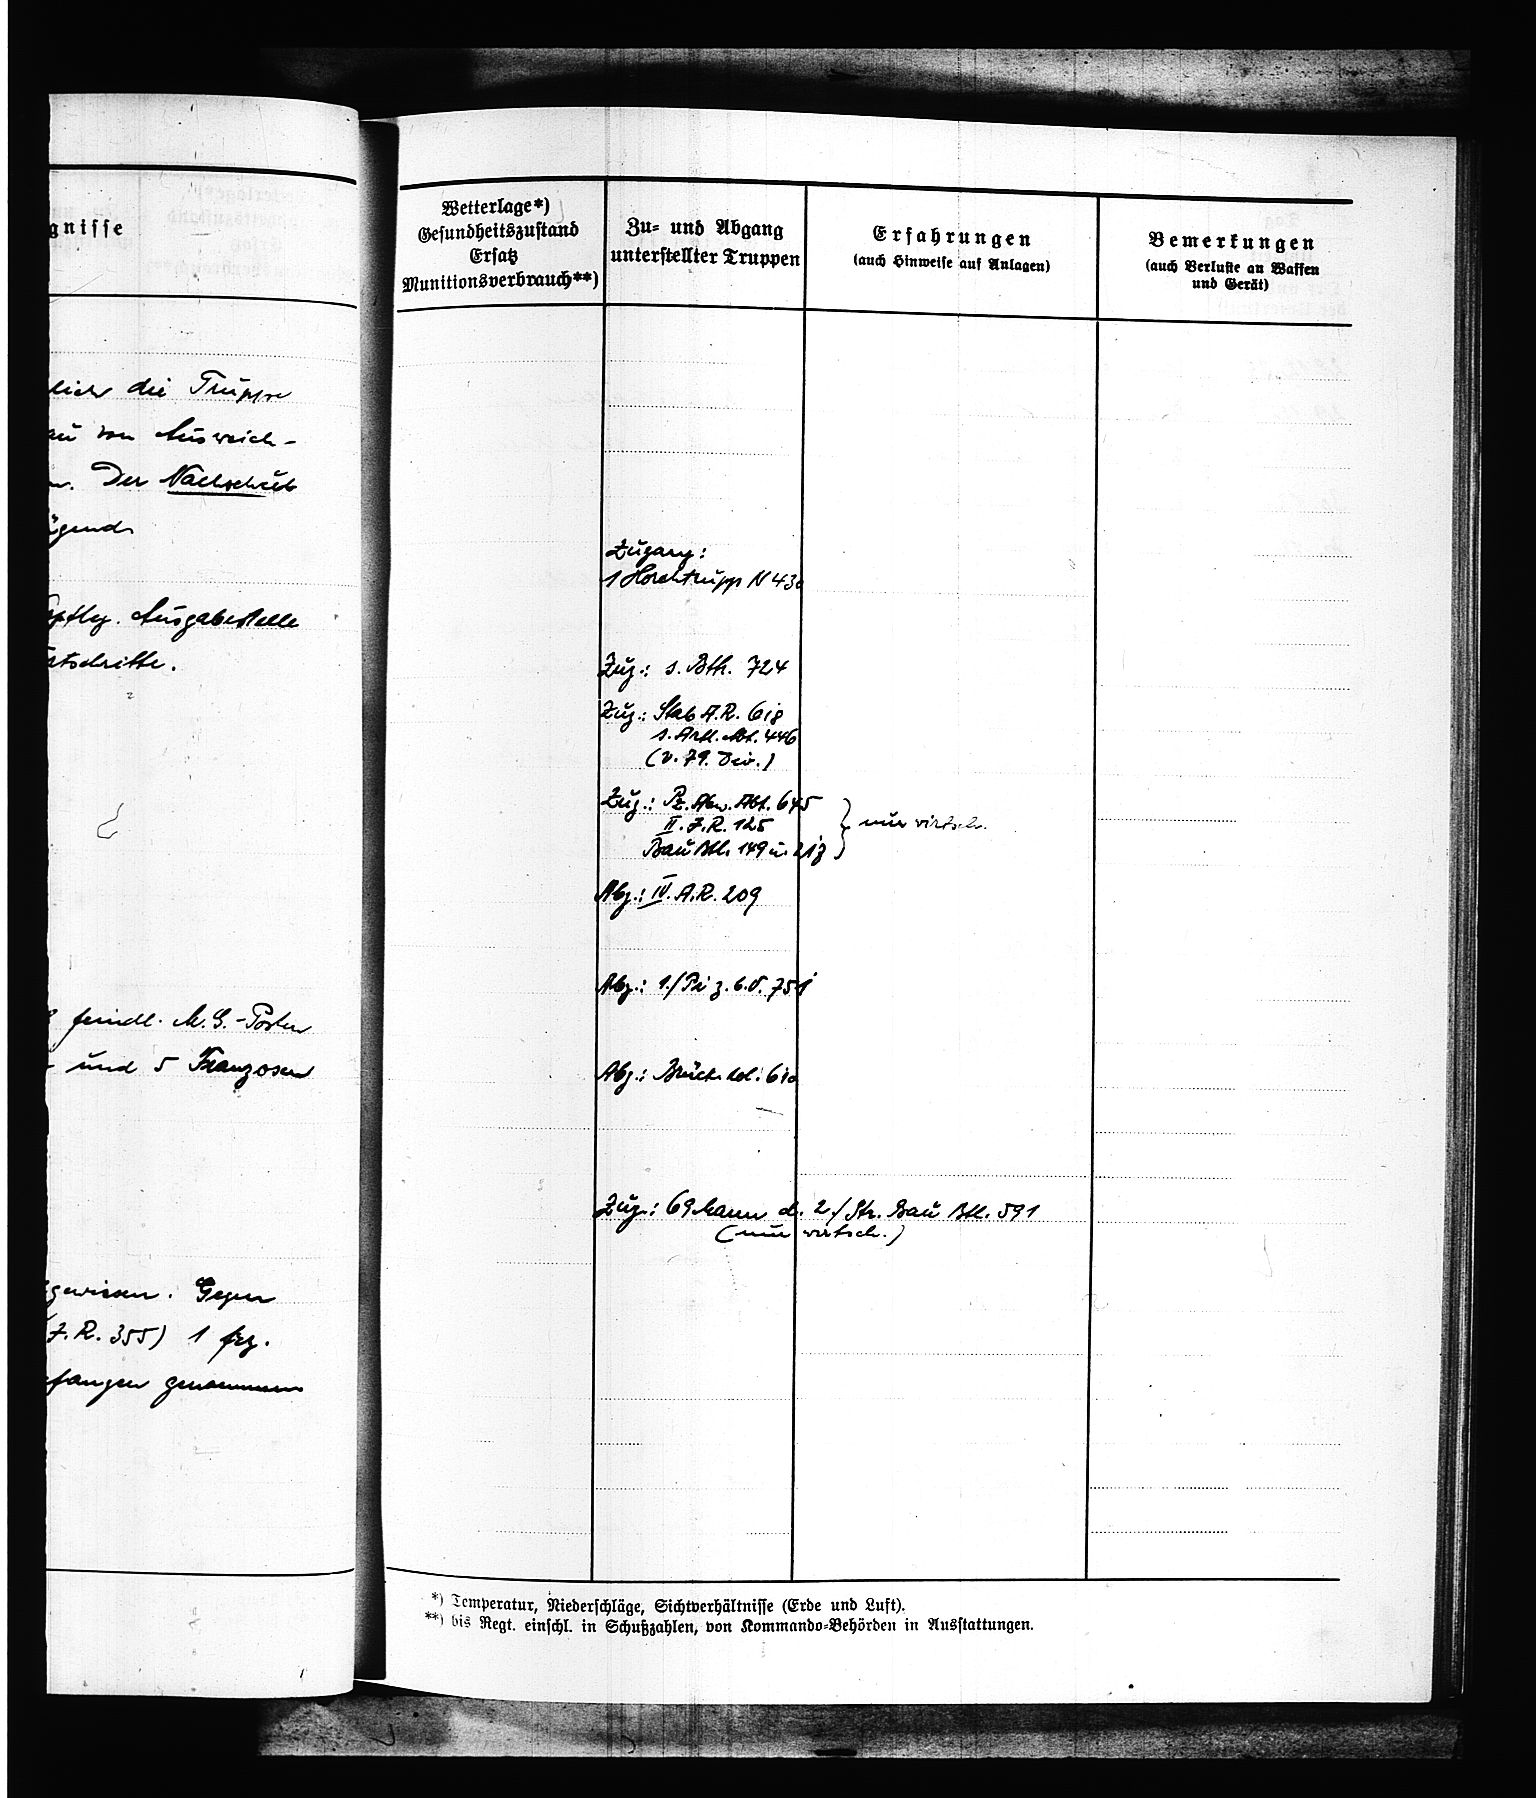 gnisse
die Truppe
von Ausweich-
Der Nachschub
ügend
Ausgabestelle
feindl. M.G.-Posten
und 5 Franzosen
Gegen
(J.R. 355) 1 frz.
genommen
Wetterlage*)
Gesundheitszustand
Ersatz
Munitionsverbrauch**)
Zu- und Abgang
unterstellter Truppen
Erfahrungen
(auch Hinweise auf Anlagen)
Bemerkungen
(auch Verluste an Waffen
und Gerät)
Zugang:
1 Horchtrupp N 430
Zug.: s. Bttr. 724
Zug.: Stab A.R. 618
s. Artl. Abt. 446
(v. 79. Div.)
Zug.: Pz. Abw. Abt. 645
II. J.R. 125
Bau Btl. 149 u.
} nur wirtsch.
Abg.: IV. A.R. 209
Abg.: 1./Pi z.b.V. 751
Abg.: Brück. kol. 610
Zug.: 69 Mann d. 2./Str. Bau Btl. 591
(nur wirtsch.)
*) Temperatur, Niederschläge, Sichtverhältnisse (Erde und Luft).
**) bis Regt. einschl. in Schußzahlen, von Kommando-Behörden in Ausstattungen.